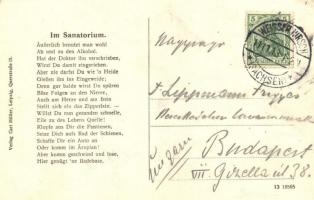 Im Sanatorium.
Äußerlich benutzt man wohl
Ab und zu den Alkohol.
Hat der Doktor ihn verschrieben,
Wirst Du damit eingerieben.
Aber nie darfst Du wie 'n Heide
Gießen ihn ins Eingeweide;
Denn gar balde wirst Du spüren
Böse Folgen an den Nieren,
Auch am Herze und an fein
Stellt sich ein das Zipperlein. —
Willst Du nun gesunden schnelle,
Eile zu des Lebens Quelle!
Klopfe an Dir die Pantinen,
Setze Dich aufs Rad der Schienen,
Schaffe Dir ein Auto an
Oder komm im Äroplan!
Aber komm geschwind und lose,
Hier genügt 'ne Badehose.
Verlag Carl Müller, Leipzig, Querstraße
WEISSER HIRSCH
SACHSEN
Nagysgos
Lippmann
Budapest
VII Gizella út 38.
Ungarn
13 10505